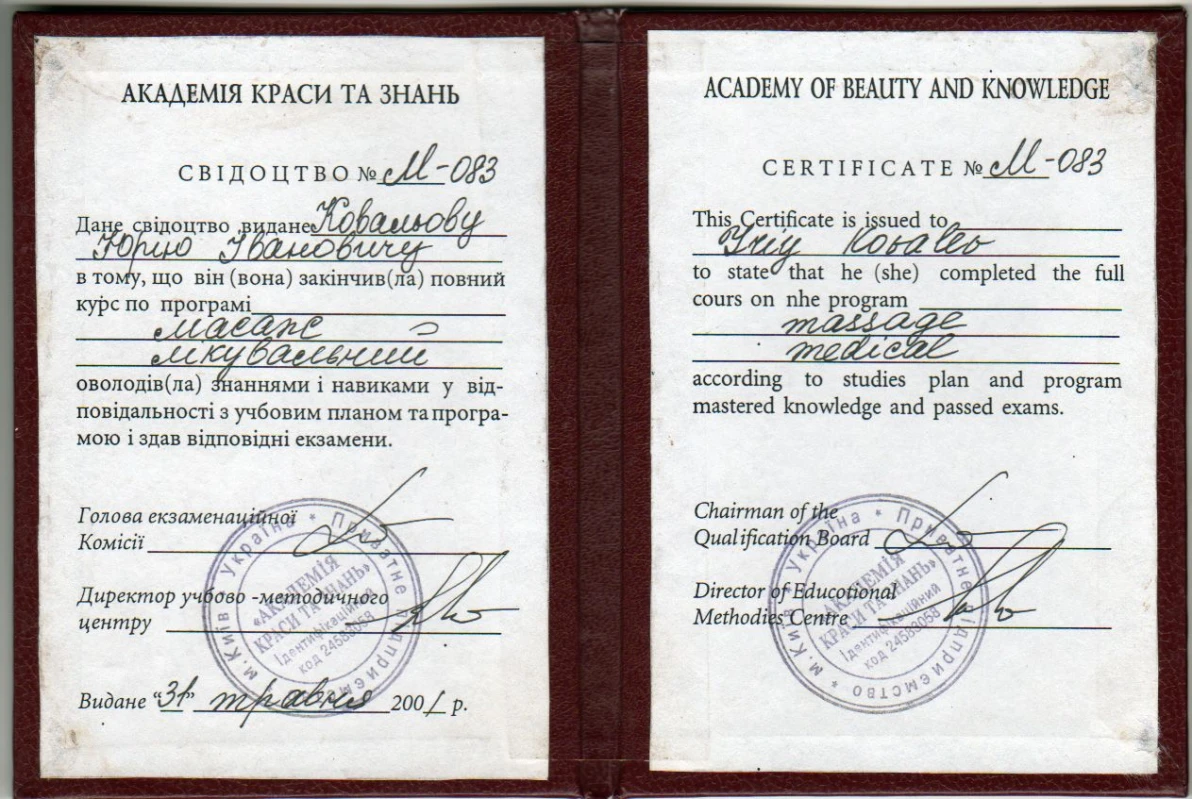 АКАДЕМІЯ КРАСИ ТА ЗНАНЬ
СВІДОЦТВО № М-083
Дане свідоцтво видане Ковальову
Юрію Івановичу
в тому, що він (вона) закінчив(ла) повний
курс по програмі
масаж
лікувальний
оволодів(ла) знаннями і навиками у від-
повідальності з учбовим планом та програ-
мою і здав відповідні екзамени.
Голова екзаменаційної
Комісії
Директор учбово -методичного
центру
Видане "31" травня 2001 р.
м.Київ * Україна * Приватне підприємство
«АКАДЕМІЯ
КРАСИ ТА ЗНАНЬ»
Ідентифікаційний
код 24583058
ACADEMY OF BEAUTY AND KNOWLEDGE
CERTIFICATE № М-083
This Certificate is issued to
Yriy Kovalev
to state that he (she) completed the full
cours on nhe program
massage
medical
according to studies plan and program
mastered knowledge and passed exams.
Chairman of the
Qualification Board
Director of Educotional
Methodies Centre
м.Київ * Україна * Приватне підприємство *
«АКАДЕМІЯ
КРАСИ ТА ЗНАНЬ»
Ідентифікаційний
код 24583058